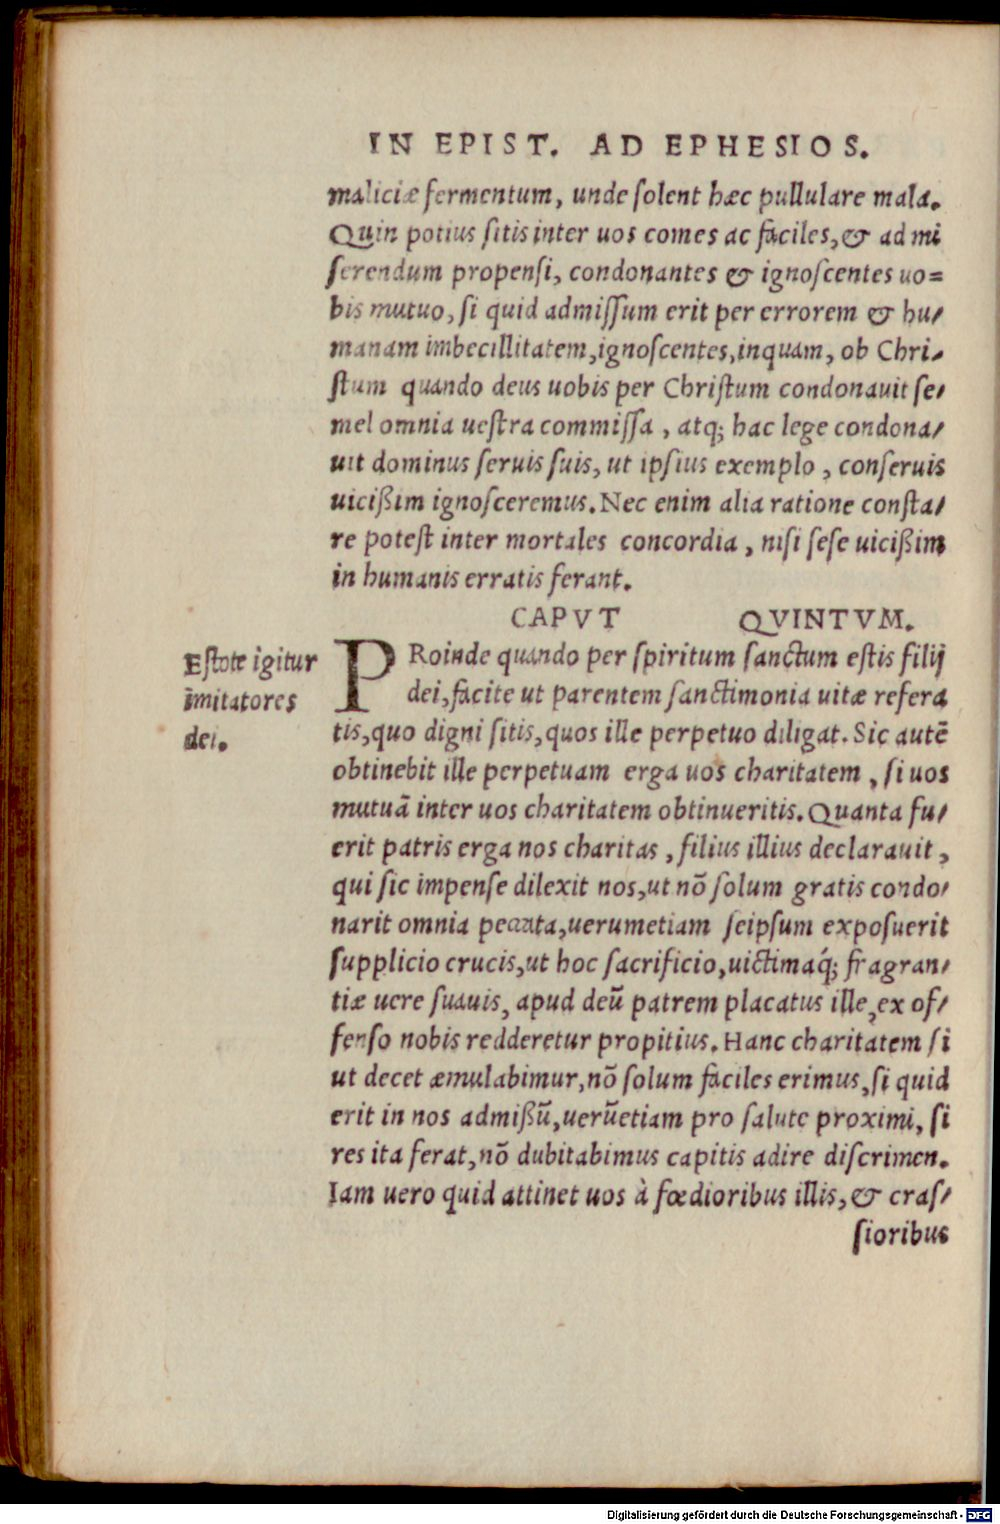 IN EPIST. AD EPHESIOS.
maliciæ fermentum, unde solent hæc pullulare mala.
Quin potius sitis inter uos comes ac faciles, & ad mi
serendum propensi, condonantes & ignoscentes uo=
bis mutuo, si quid admissum erit per errorem & hu-
manam imbecillitatem, ignoscentes, inquam, ob Chri-
stum quando deus uobis per Christum condonauit se-
mel omnia uestra commissa, atq; hac lege condona-
uit dominus seruis suis, ut ipsius exemplo, conseruis
uicißim ignosceremus. Nec enim alia ratione consta-
re potest inter mortales concordia, nisi sese uicißim
in humanis erratis ferant.
CAPVT QVINTVM.
Estote igitur
imitatores
dei.
PRoinde quando per spiritum sanctum estis filij
dei, facite ut parentem sanctimonia uitæ refera
tis, quo digni sitis, quos ille perpetuo diligat. Sic autē
obtinebit ille perpetuam erga uos charitatem, si uos
mutuā inter uos charitatem obtinueritis. Quanta fu-
erit patris erga nos charitas, filius illius declarauit,
qui sic impense dilexit nos, ut nō solum gratis condo-
narit omnia peccata, uerumetiam seipsum exposuerit
supplicio crucis, ut hoc sacrificio, uictimaq́; fragran-
tiæ uere suauis, apud deū patrem placatus ille, ex of-
fenso nobis redderetur propitius. Hanc charitatem si
ut decet æmulabimur, nō solum faciles erimus, si quid
erit in nos admißū, uerūetiam pro salute proximi, si
res ita ferat, nō dubitabimus capitis adire discrimen.
Iam uero quid attinet uos à fœdioribus illis, & cras-
sioribus
Digitalisierung gefördert durch die Deutsche Forschungsgemeinschaft - DFG